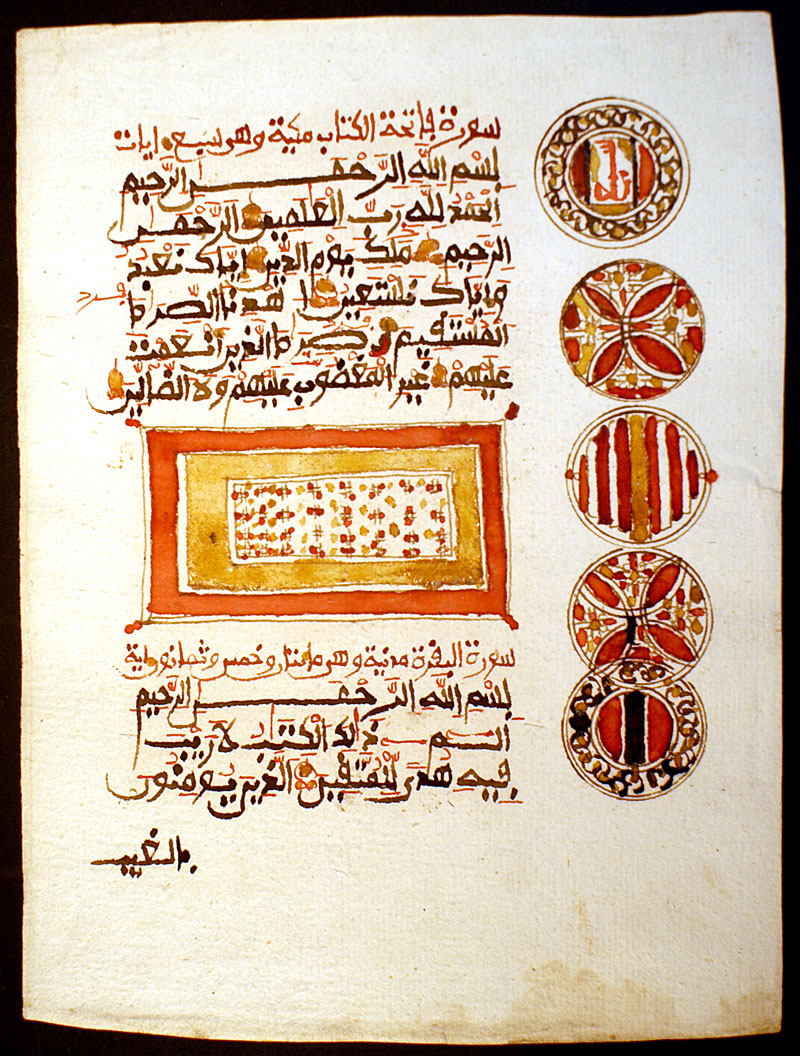 سورة فاتحة الكتاب مكية وهي سبع ءايات
بِسْمِ اللهِ الرَّحْمَٰنِ الرَّحِيمِ
الْحَمْدُ لِلهِ رَبِّ الْعَٰلَمِينَ الرَّحْمَٰنِ
الرَّحِيمِ مَلِكِ يَوْمِ الدِّينِ إِيَّاكَ نَعْبُدُ
وَإِيَّاكَ نَسْتَعِينُ اِهْدِنَا الصِّرَاطَ
الْمُسْتَقِيمَ صِرَاطَ الَّذِينَ أَنْعَمْتَ
عَلَيْهِمْ غَيْرِ الْمَغْضُوبِ عَلَيْهِمْ وَلَا الضَّالِّينَ
سورة البقرة مدنية وهي مائتان وخمس وثمانون ءاية
بِسْمِ اللهِ الرَّحْمَٰنِ الرَّحِيمِ
الٓمٓ ذَٰلِكَ الْكِتَٰبُ لَا رَيْبَ
فِيهِ هُدًى لِّلْمُتَّقِينَ الَّذِينَ يُومِنُونَ
بِالْغَيْبِ